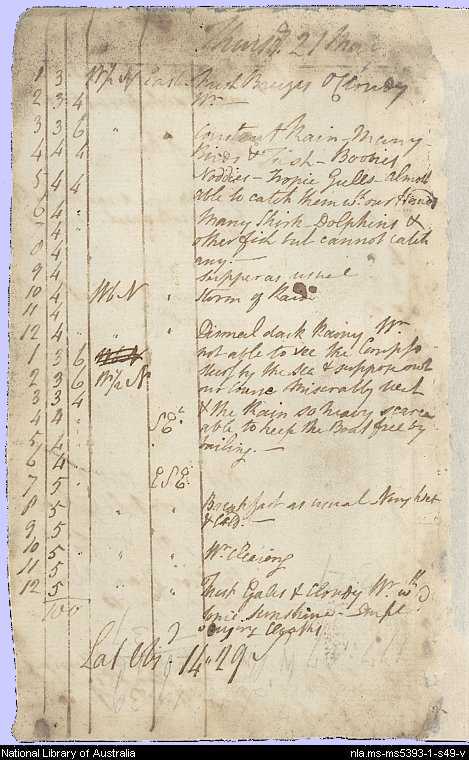 Thursd. 21 May
1 3 W½N East Fresh Breezes & Cloudy
2 3 4 Wr.—
3 3 6 " " Constant Rain – Many
4 4 4 Birds & Fish – Boobies
5 4 4 Noddies – Tropic Gulls almost
able to catch them wth. our Hands
6 4 "
7 4 Many Shirk – Dolphins &
8 4 " other fish but cannot catch
any.—
9 4 supper as usual
10 4 WbN " Storm of Rain
11 4
12 4 " " Dismal dark Rainy Wr.
1 3 6 not able to see the Comp. so
2 3 6 W½N Steer by the sea & suppose
3 3 4 our Course Miserably wet
4 4 SEt. & the Rain so heavy scarce
5 4 able to keep the Boat free by
6 4 bailing.—
7 5 ESE.
8 5 Breakfast as usual Very Wet
9 5 & Cold —
10 5 " " Wr. Clearing
11 5
12 5 " " Fresh Gales & Cloudy Wr. wth.
100 some Sunshine –
wring Cloaths
Lat Obsd. 14"29 S
National Library of Australia
nla.ms-ms5393-1-s49-v